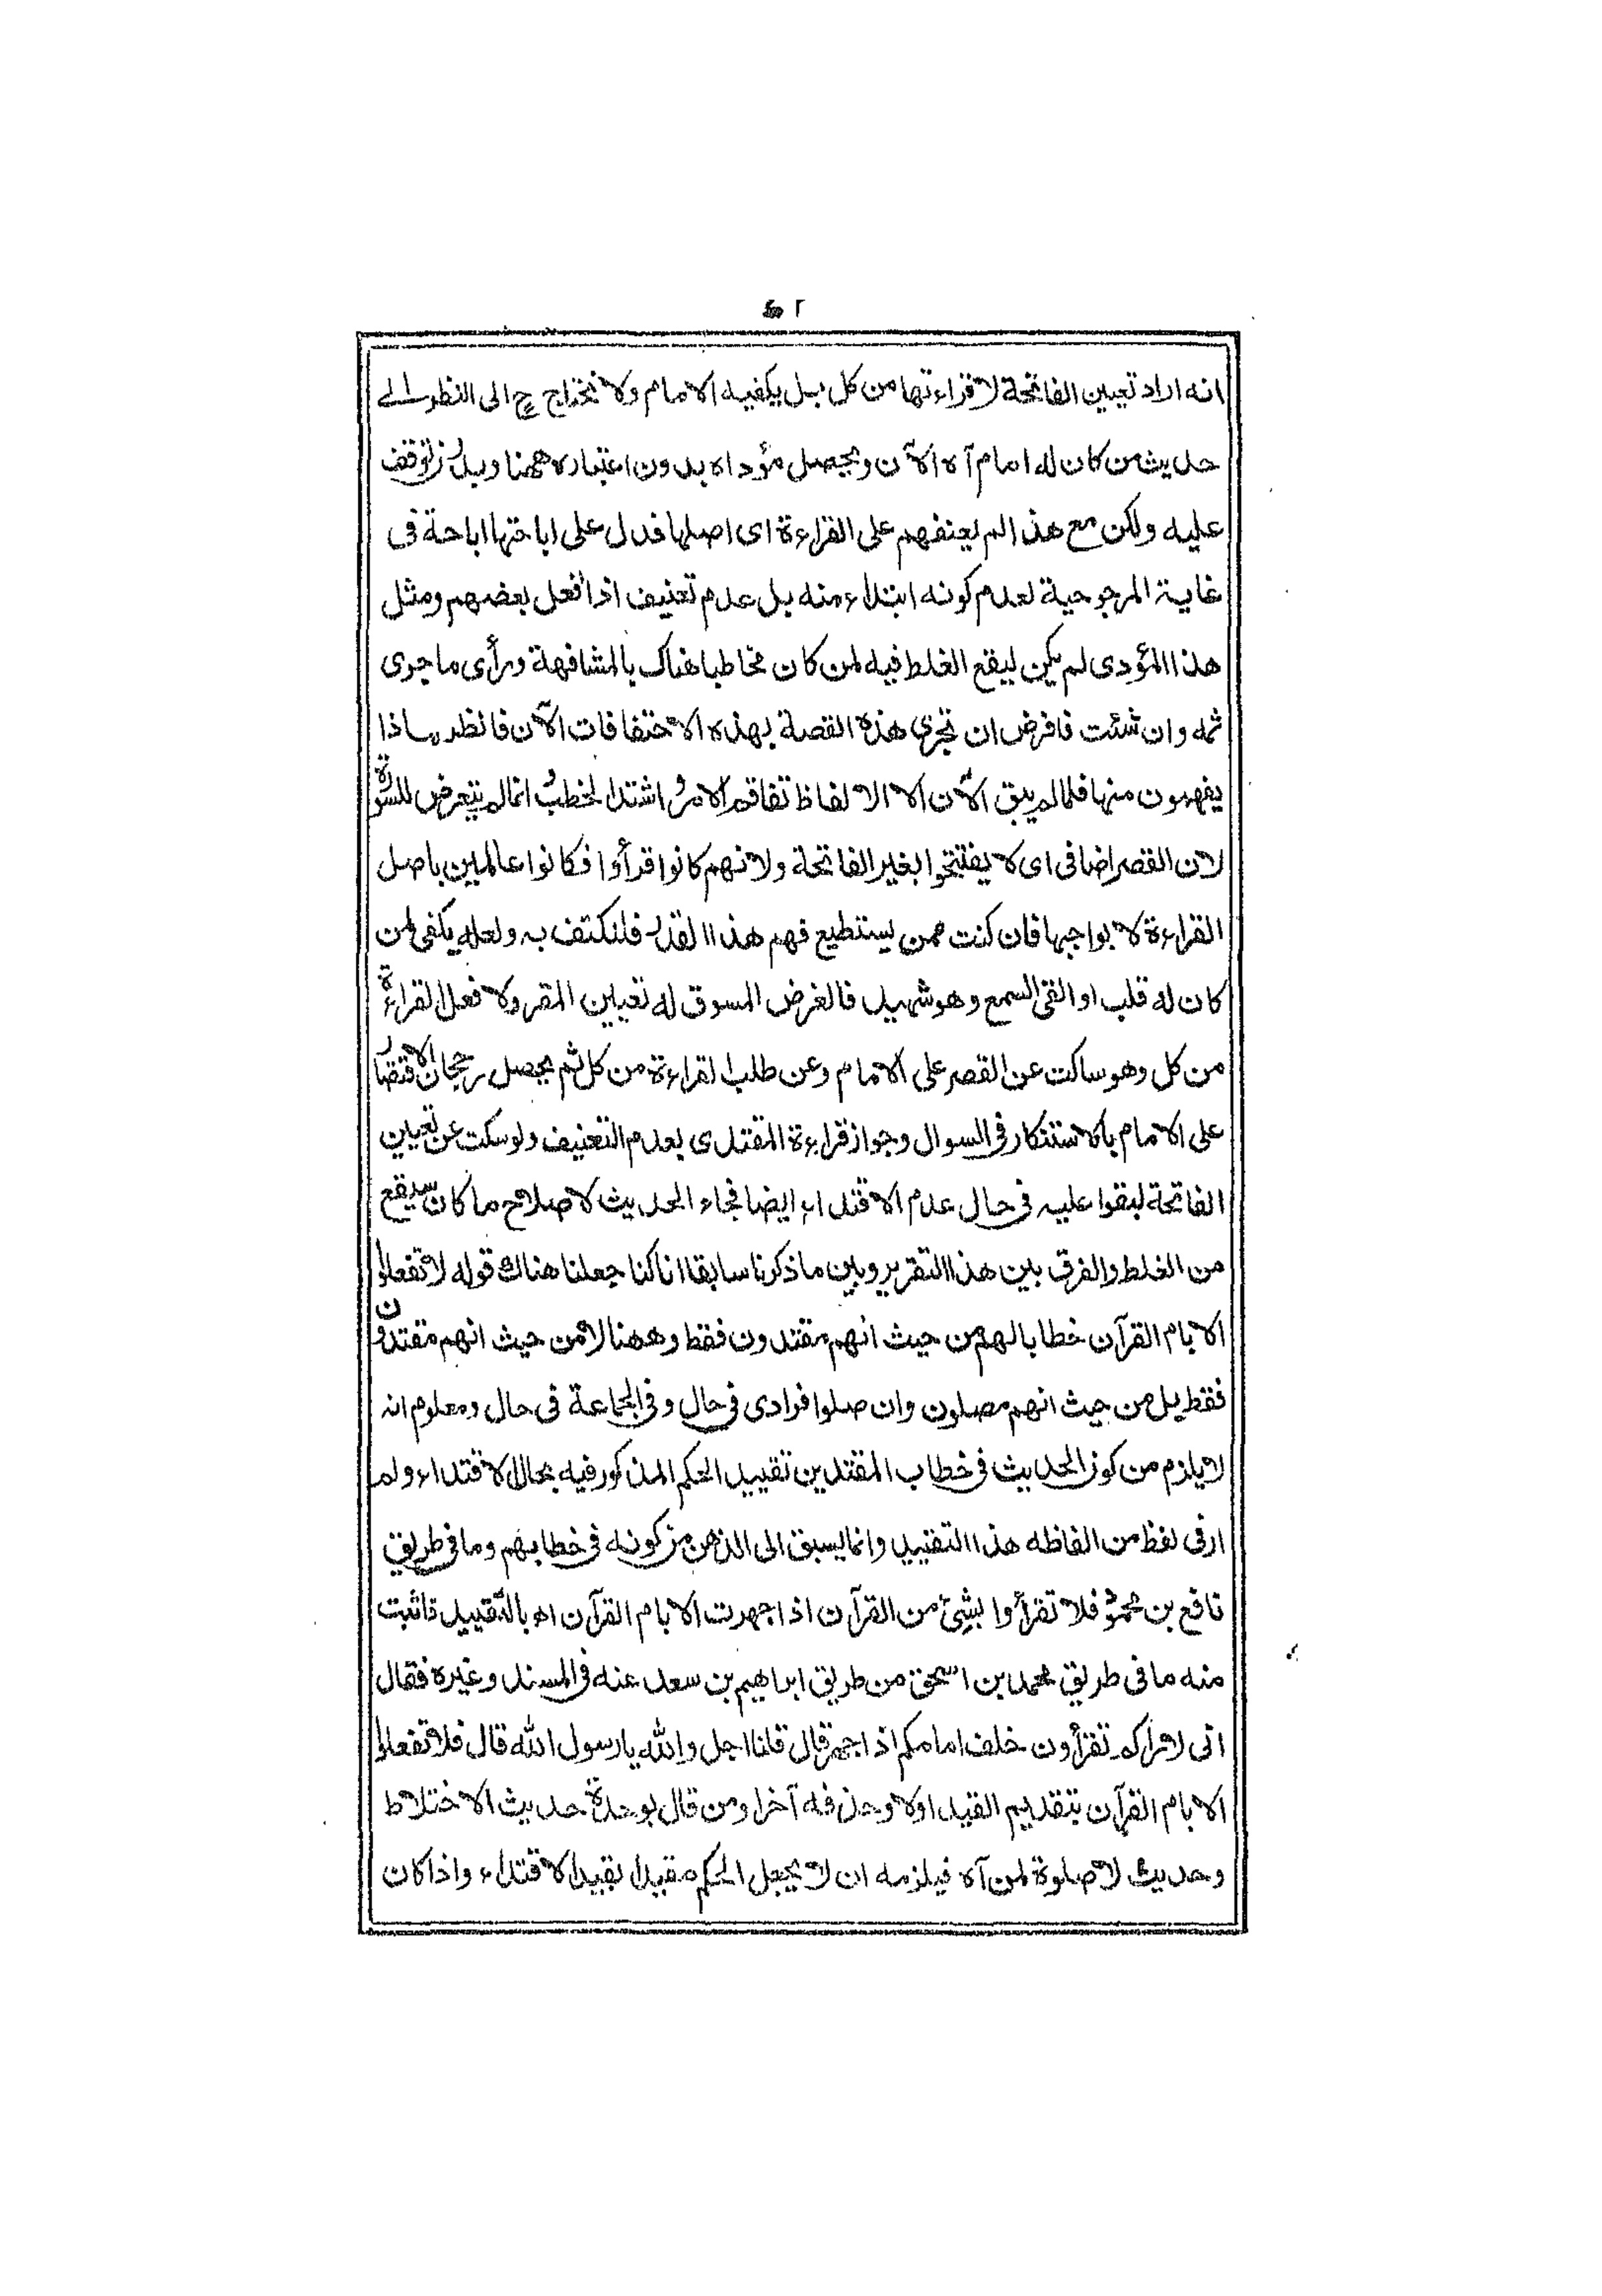 انه اراد تعيين الفاتحة لا قراءتها من كل بل يكفيه الامام ولا نحتاج ح الى النظر الى
حديث من كان له امام آه الآن ويحصل مؤداه بدون اعتباره ههنا وبدون توقف
عليه ولكن مع هذا لم يعنفهم على القراءة اى اصلها فدل على اباحتها اباحة فى
غاية المرجوحية لعدم كونه ابتداء منه بل عدم تعنيف اذا فعل بعضهم ومثل
هذا المؤدى لم يكن ليقع الغلط فيه لمن كان مخاطبا هناك بالمشافهة ورأى ما جرى
ثمه وان شئت فافرض ان تجرى هذه القصة بهذه الاحتفافات الآن فانظر ماذا
يفهمون منها فلما لم يبق الآن الا الالفاظ تفاقم الامر واشتد الخطب وانما لم يتعرض للسورة
لان القصر اضافى اى لا يفتتحوا بغير الفاتحة ولانهم كانوا قرأوا فكانوا عالمين باصل
القراءة لا بواجبها فان كنت ممن يستطيع فهم هذا القدر فلنكتف به ولعله يكفى لمن
كان له قلب او القى السمع وهو شهيد فالغرض المسوق له تعيين المقرو لا فعل القراءة
من كل وهو ساكت عن القصر على الامام وعن طلب القراءة من كل ثم يحصل رجحان الاقتصار
على الامام بالاستنكار فى السوال وجواز قراءة المقتدى بعدم التعنيف ولو سكت عن تعيين
الفاتحة لبقوا عليه فى حال عدم الاقتداء ايضا فجاء الحديث لاصلاح ما كان سيقع
من الغلط والفرق بين هذا التقرير وبين ما ذكرنا سابقا انا كنا جعلنا هناك قوله لا تفعلوا
الا بام القرآن خطابا لهم من حيث انهم مقتدون فقط وههنا لا من حيث انهم مقتدون
فقط بل من حيث انهم مصلون وان صلوا فرادى فى حال وفى الجماعة فى حال ومعلوم انه
لا يلزم من كون الحديث فى خطاب المقتدين تقييد الحكم المذكور فيه بحال الاقتداء ولم
ار فى لفظ من الفاظه هذا التقييد وانما يسبق الى الذهن من كونه فى خطابهم وما فى طريق
نافع بن محمود فلا تقرأوا بشئ من القرآن اذا جهرت الا بام القرآن اه بالتقييد فاثبت
منه ما فى طريق محمد بن اسحق من طريق ابراهيم بن سعد عنه فى المسند وغيره فقال
انى لاراكم تقرأون خلف امامكم اذا جهر قال قلنا اجل والله يا رسول الله قال فلا تفعلوا
الا بام القرآن بتقديم القيد اولا وحذفه آخرا ومن قال بوحدة حديث الاختلاط
وحديث لا صلوة لمن آه فيلزمه ان لا يجعل الحكم مقيدا بقيد الاقتداء واذا كان